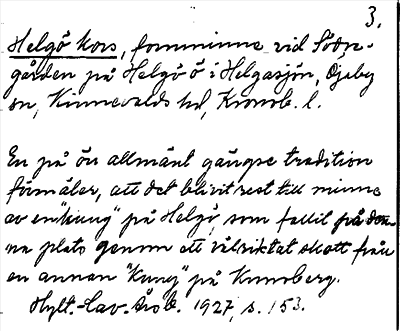 3.
Helgö kors, fornminne vid Södre-
gården på Helgö ö i Helgasjön, Öjaby
sn, Kinnevalds hd, Kronob. l.
En på ön allmänt gängse tradition
förmäler, att det blivit rest till minne
av en "kung" på Helgö, som fallit på den-
na plats genom ett välriktat skott från
en annan "kung" på Kunsberg.
Hylt.-Cav. Årsb. 1927, s. 153.